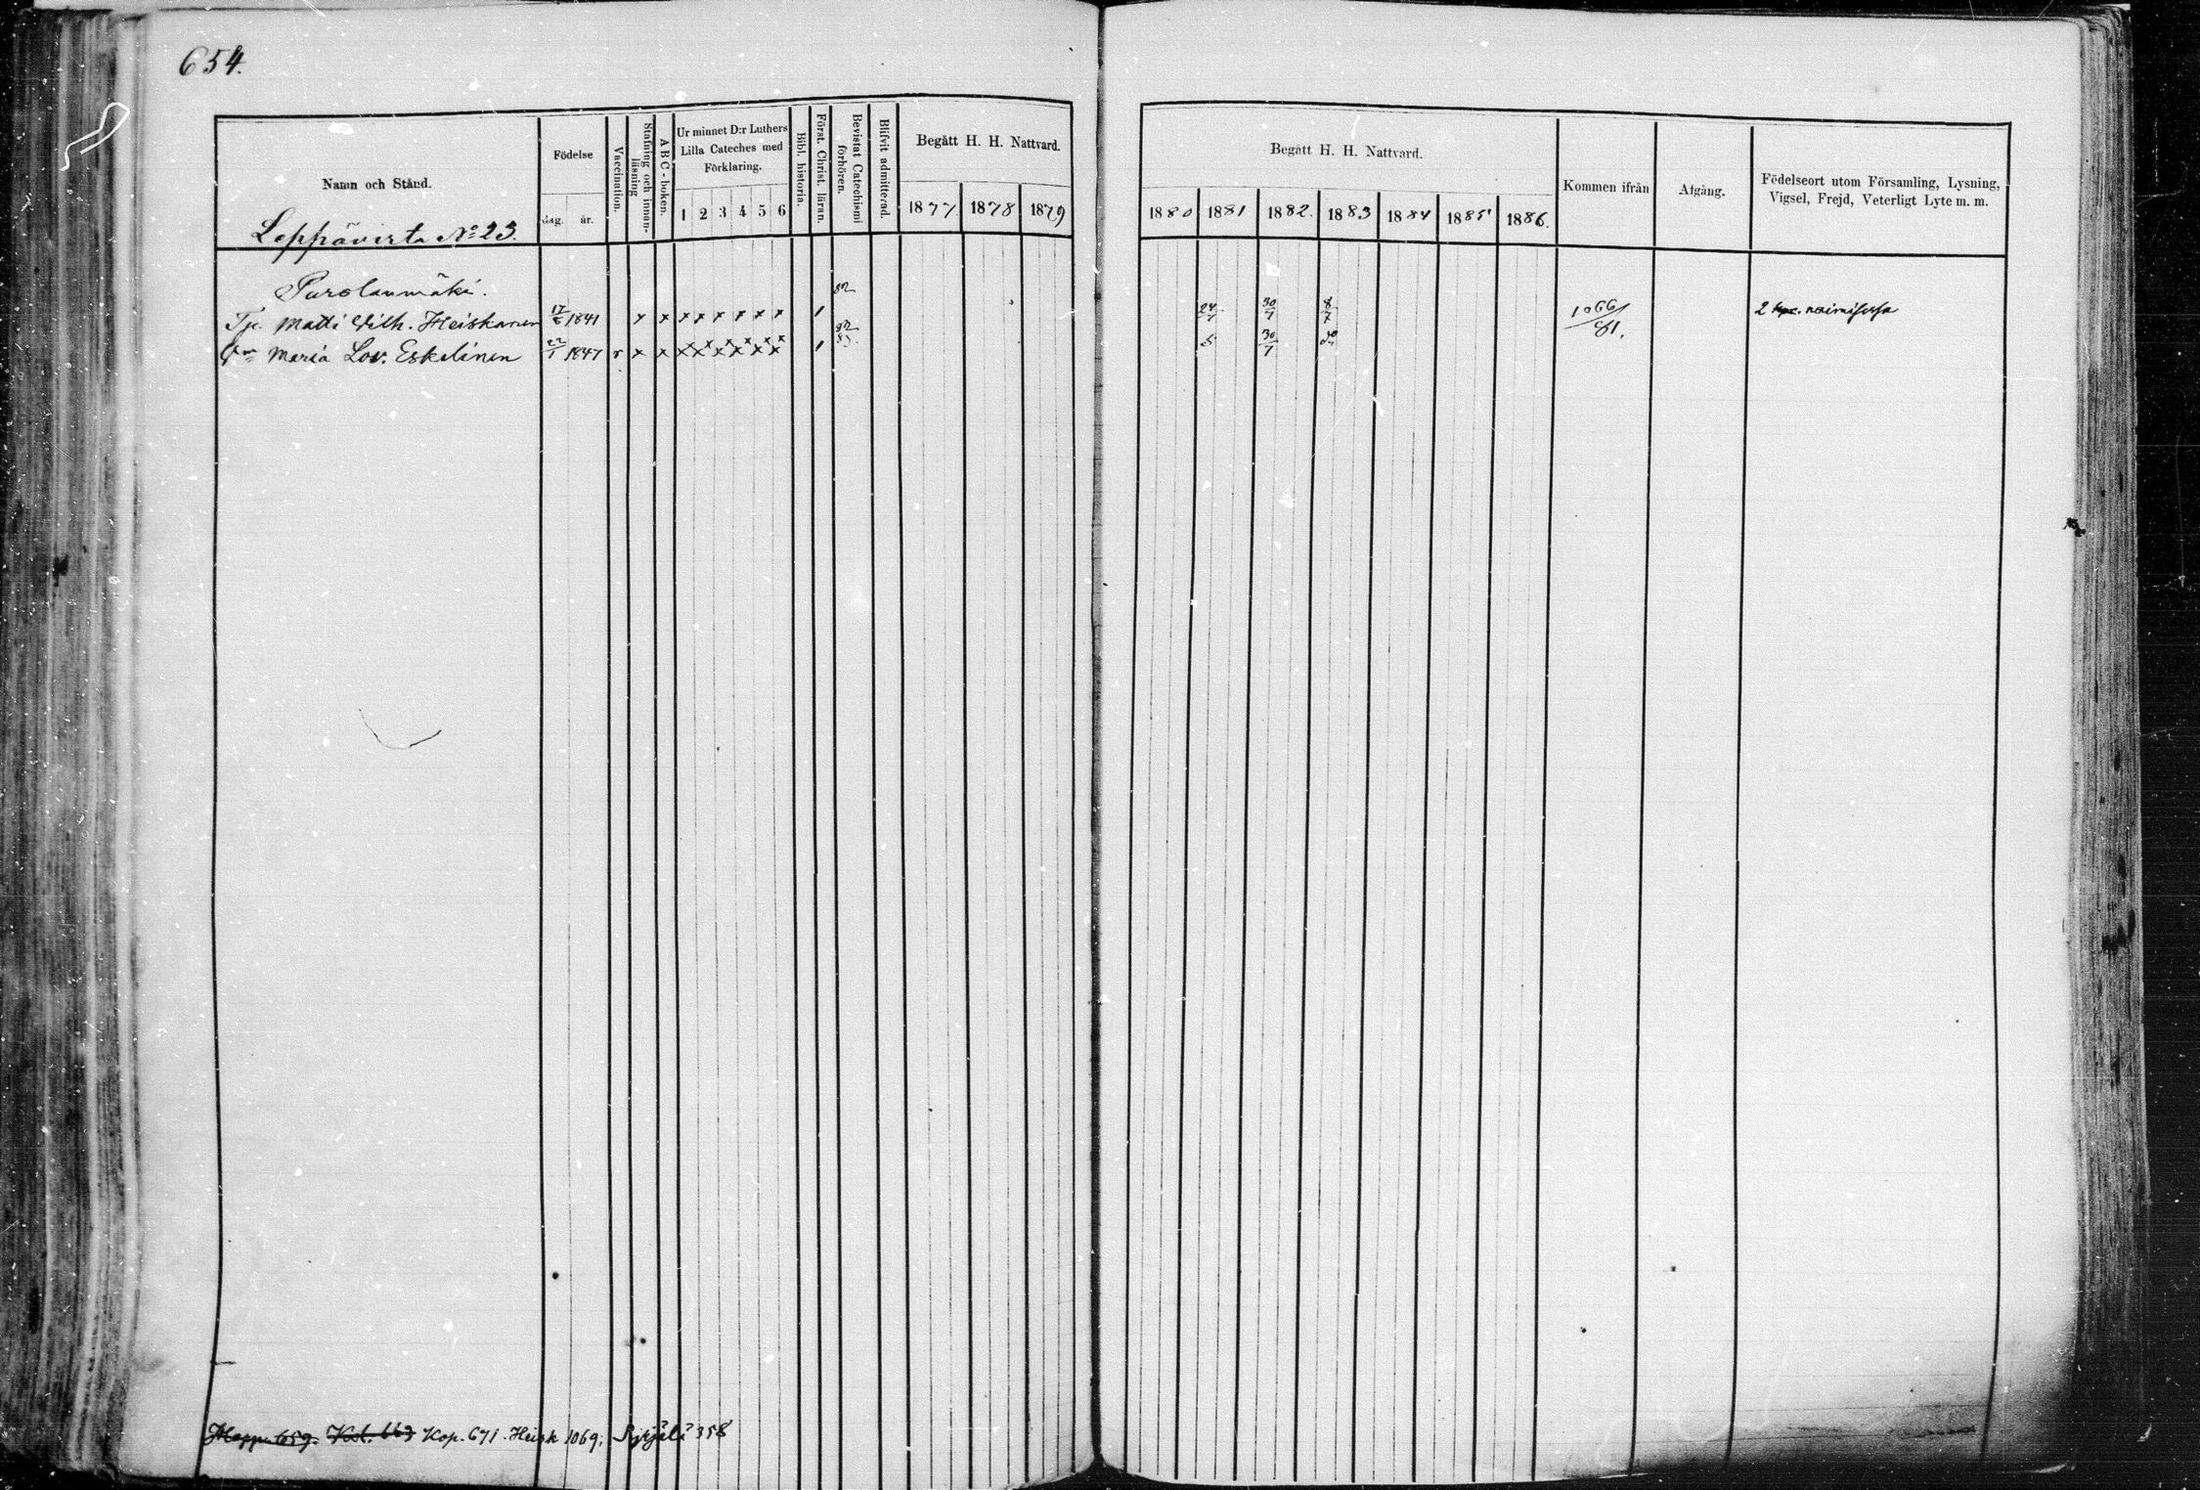 654.
Namn och Stånd.
Födelse
dag. år.
Vaccination.
Stafning och innan-
läsning
A B C - boken.
Ur minnet D:r Luthers
Lilla Cateches med
Förklaring.
1 2 3 4 5 6
Bibl. historia.
Först. Christ. läran.
Bevistat Catechismi
förhören.
Blifvit admitterad.
Begått H. H. Nattvard.
1877 1878 1879
Begått H. H. Nattvard.
1880 1881 1882. 1883 1884 1885 1886.
Kommen ifrån
Afgång.
Födelseort utom Församling, Lysning,
Vigsel, Frejd, Veterligt Lyte m. m.
Leppävirta No 23.
Purolanmäki.
82
Tje. Matti Wilh. Heiskanen 17/8 1841 x x x x x x x x 1 24/7 30/7 8/7 1066/81. 2
Qvn Maria Lov. Eskelinen 22/1 1847 v x x x x x x x x 1 82 83. 30/7
Kop. 671. Heisk 1069; 358